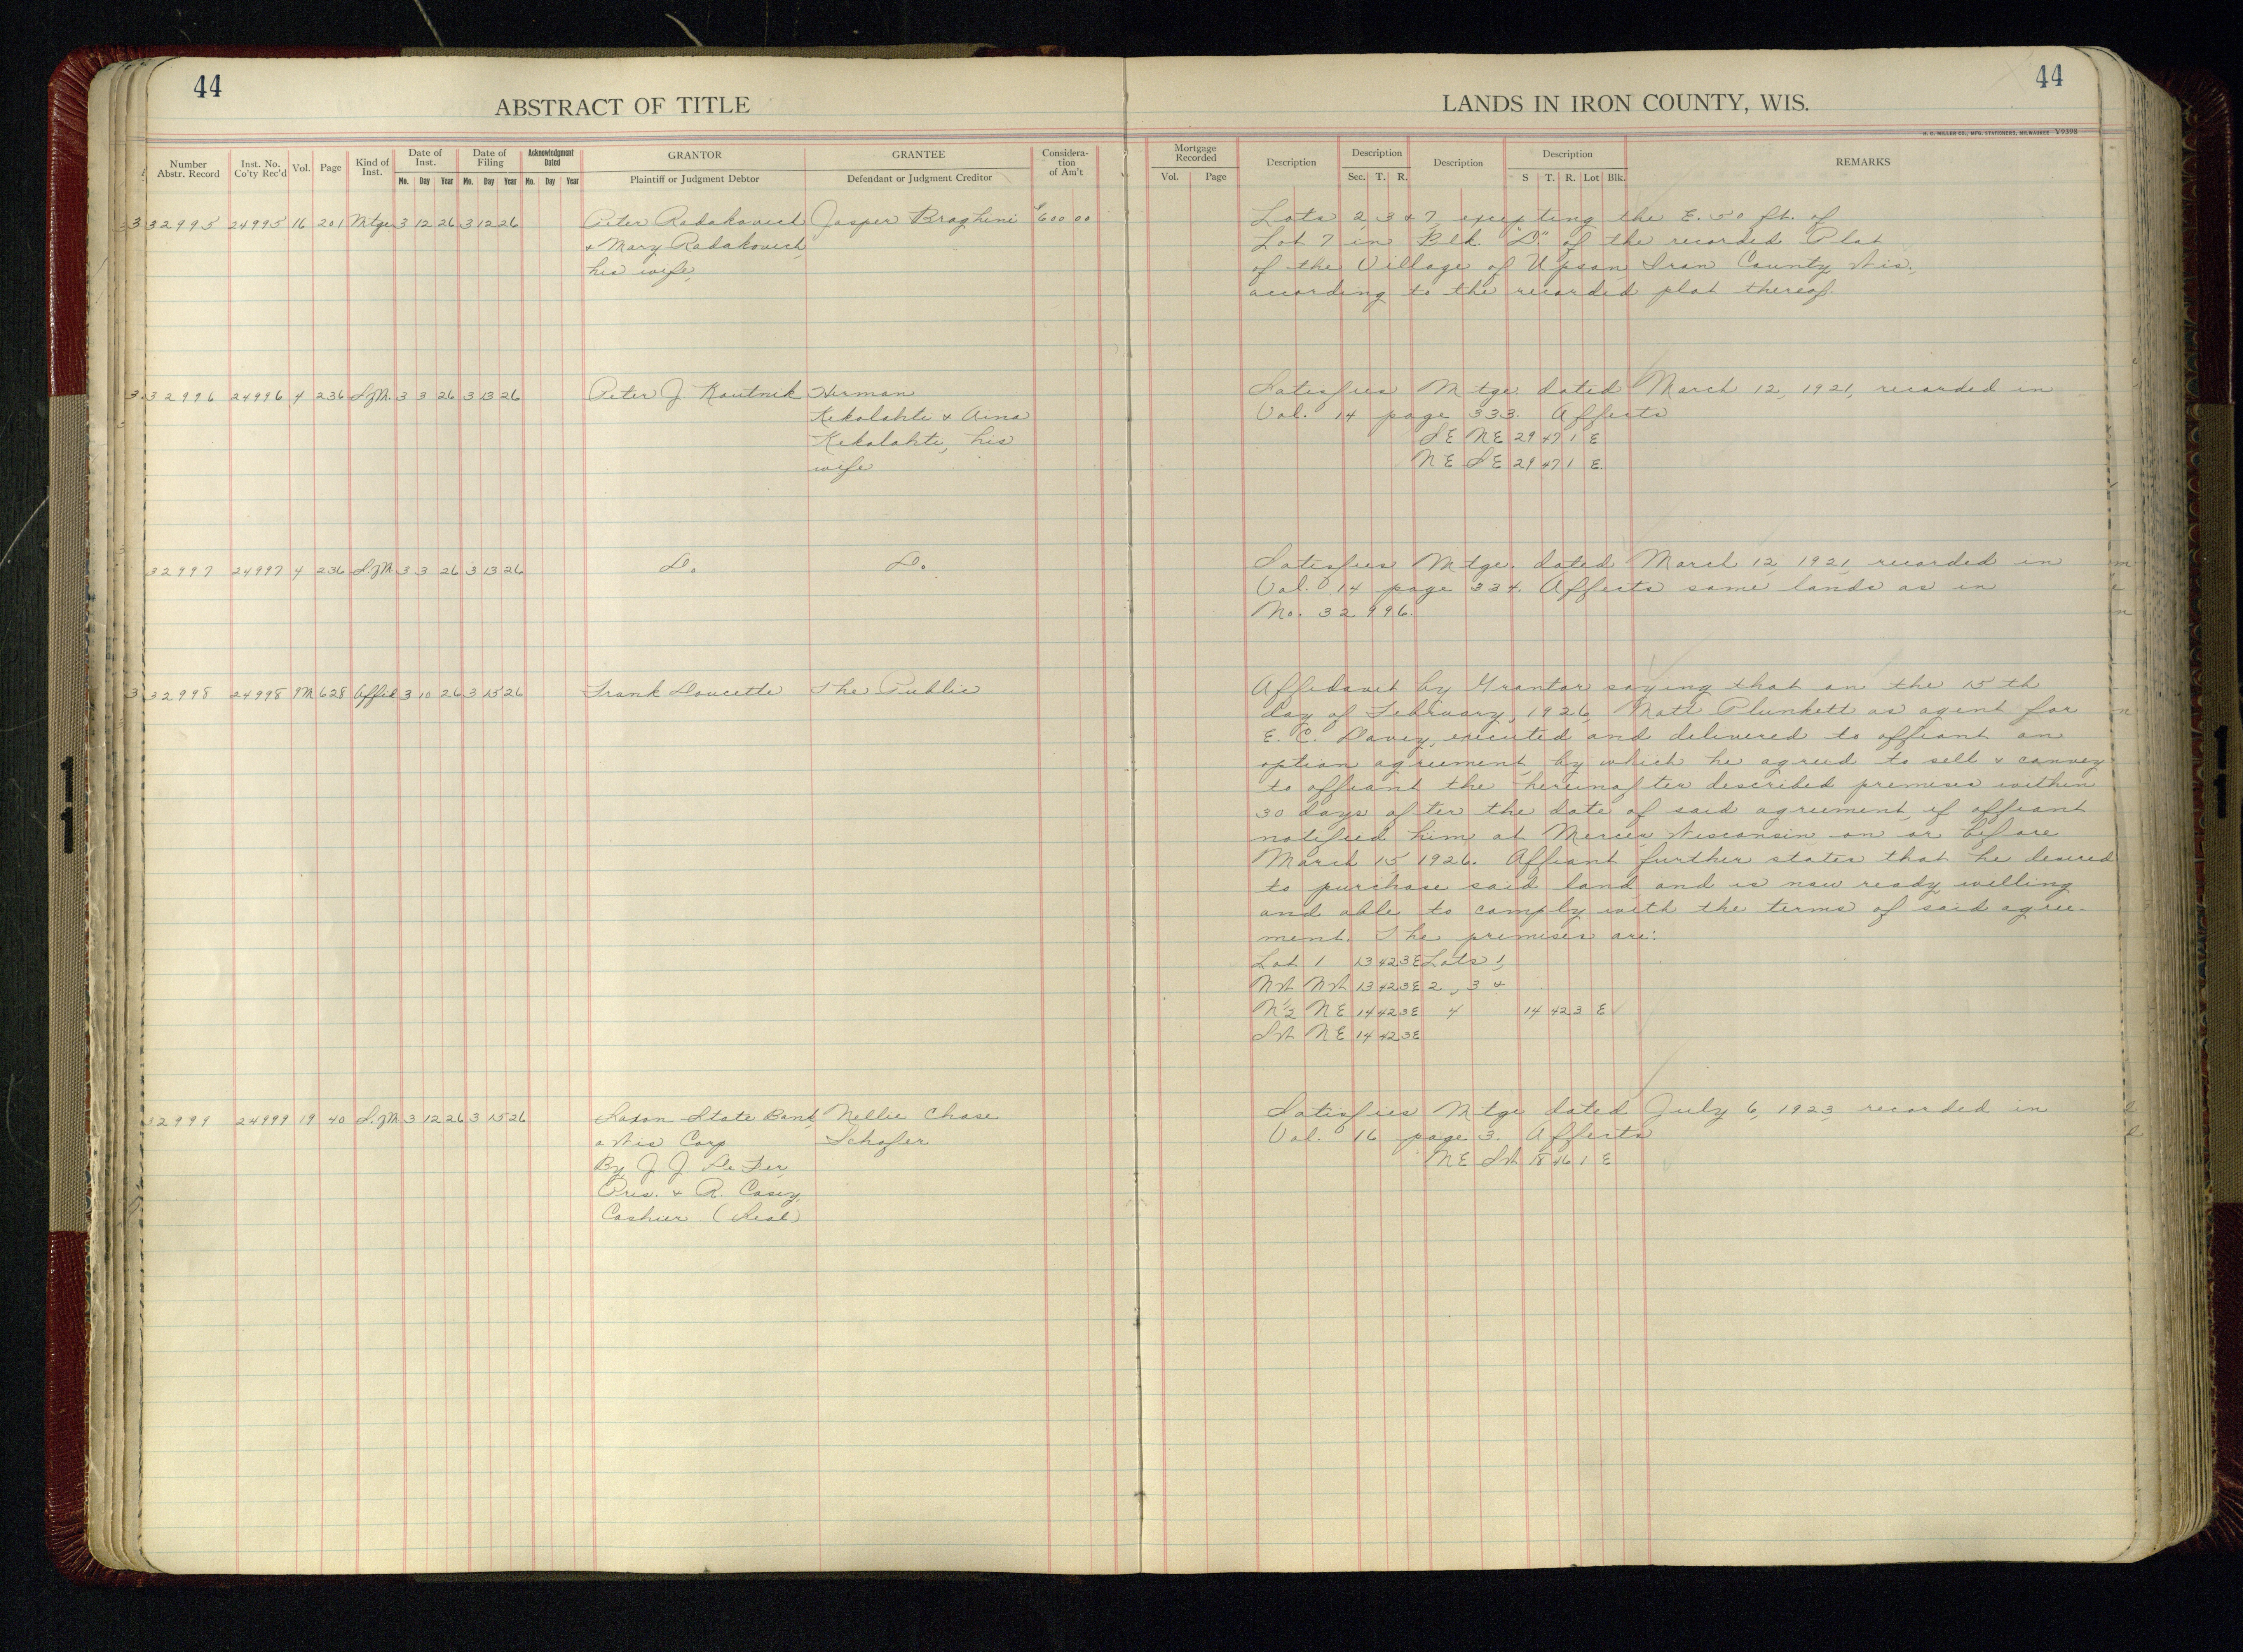 44
44
ABSTRACT OF TITLE
LANDS IN IRON COUNTY, WIS.
H. C. MILLER CO., MFG. STATIONERS, MILWAUKEE V9398
Number Abstr. Record Inst. No. Co'ty Rec'd Vol. Page Kind of Inst. Date of Inst. Mo. Day Year Date of Filing Mo. Day Year Acknowledgment Dated Mo. Day Year GRANTOR Plaintiff or Judgment Debtor GRANTEE Defendant or Judgment Creditor Considera-tion of Am't
Mortgage Recorded Vol. Page Description Description Sec. T. R. Description Description S T. R. Lot Blk. REMARKS
32995 24995 16 201 Mtge 3 12 26 3 12 26 Peter Radakovich Jasper Braghini $600 00 Lots 2, 3 & 7, excepting the E. 50 ft. of
& Mary Radakovich, Lot 7 in Blk. "D." of the recorded Plat
his wife, of the Village of Upson, Iron County Wis.,
according to the recorded plat thereof.
32996 24996 4 236 S.of M. 3 3 26 3 13 26 Peter J Koutnik Herman Satisfies Mtge. dated March 12, 1921, recorded in
Kekolahti & Aina Vol. 14 page 333. Affects
Kekolahti, his SE NE 29 47 1 E
wife NE SE 29 47 1 E.
32997 24997 4 236 S.of M 3 3 26 3 13 26 D. D. Satisfies Mtge. dated March 12, 1921, recorded in
Vol. 14 page 334. Affects same lands as in
No. 32996.
32998 24998 9M 628 Affid 3 10 26 3 15 26 Frank Doucette The Public Affidavit by Grantor saying that on the 15th
day of February, 1926, Matt Plunkett as agent for
E. C. Davey, executed and delivered to affiant an
option agreement, by which he agreed to sell & convey
to affiant the hereinafter described premises within
30 days after the date of said agreement, if affiant
notified him at Mercer, Wisconsin on or before
March 15 1926. Affiant further states that he desired
to purchase said land and is now ready willing
and able to comply with the terms of said agree-
ment. The premises are:
Lot 1 13 42 3E Lots 1,
NW NW 13 42 3E 2, 3 &
N½ NE 14 42 3E 4 14 42 3 E
SW NE 14 42 3E
32999 24999 19 40 S.of M 3 12 26 3 15 26 Saxon State Bank, Nellie Chase Satisfies Mtge dated July 6, 1923 recorded in
a Wis Corp. Schafer Vol. 16 page 3. Affects
By J. J. De Fer, NE SW 18 46 1 E
Pres. & R. Casey,
Cashier (Seal)